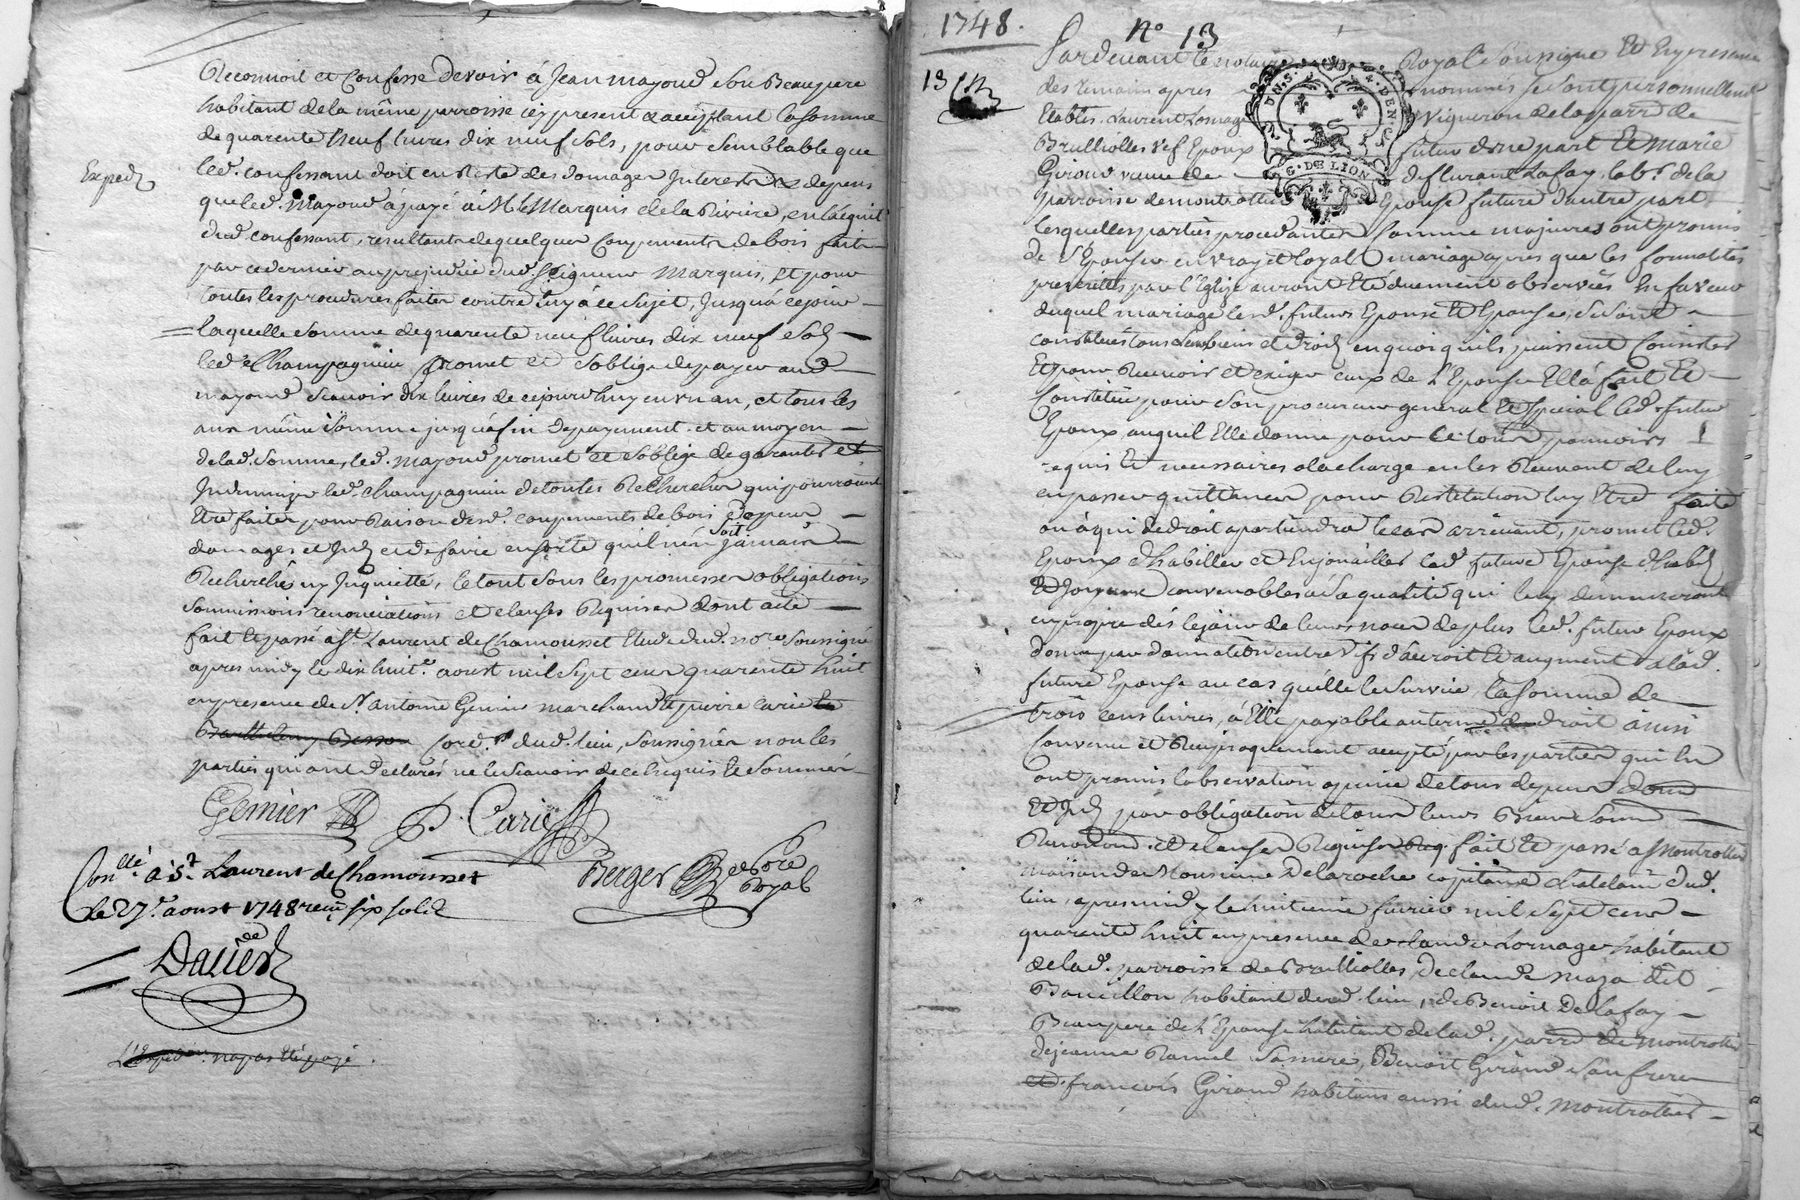 Reconnoit et Confesse devoir à Jean mayoud son Beaupere
habitant de la même parroisse icy present et acceptant la somme
de quarente neuf livres dix neuf sols, pour semblable que
Exped
led. confessant doit en Reste des domages Interests et depens
que led. Mayoud à payé à M. le Marquis de la Riviere, en l'acquit
dud confessant, resultants de quelques Coupements de bois faits
par ce dernier au prejudice dud. Seigneur Marquis, Et pour
toutes les procedures faites contre luy à ce sujet, Jusqu'à ce jour
laquelle somme de quarente neuf livres dix neuf sols
led. Champagnin promet et s'oblige de payer aud
mayoud scavoir dix livres de ce jourdhuy en un an, et tous les
ans même somme jusqu'à fin de payement et au moyen
de lad. somme, led. mayoud promet et s'oblige de garantir et
Indemniser led. Champagnin de toutes Recherches qui pourroient
Etre faites pour Raison desd. coupements de bois depens
domages et Jnt. et de faire en sorte qu'il n'en soit jamais
Recherché ny Inquietté, le tout sous les promesses obligations
soumissions renonciations et clauses Requises dont acte
fait et passé à St. Laurent de Chamousset Etude dud. nore soussigné
apres midy le dix huite. aoust mil sept cens quarente huit
en presence de Sr. antoine Genier marchand et pierre Carie
Barthelemy Besson Cord. dud. lieu, soussignés non les
parties qui ont declarés ne le scavoir de ce Requis et sommés
Genier P. Carie
Conllé à St. Laurent de Chamousset
le 27e. aoust 1748 reçu six sols
Berger Nore Royal
Dacier
L'Exped. na pas été payé.
1748. No 13
13
Pardevant le notaire Royal soussigné Et En presence
des temoins apres nommés se sont personnellement
Etablis Laurent Lornage Vigneron de la parr. de
Brulliolles Epoux futur d'une part Et Marie
Giroud veuve de de flurant Lafay, lab. de la
parroisse de montrottier Epouse future d'autre part
lesquelles parties procedantes comme majeures ont promis
de s'Epouser en vray et loyal mariage apres que les formalités
prescrites par l'Eglize auront Eté duement observées En faveur
duquel mariage lesd. futurs Epoux Et Epouse, se sont
constitués tous leurs biens et droits en quoy qu'ils puissent Consister
Et pour Recevoir et exiger ceux de l'Epouse Ella fait Et
Constitué pour son procureur general Et special led. futur
Epoux, auquel Elle donne pour ce tous pouvoirs
requis Et necessaires à la charge en les Recevant de luy
en passer quittances pour Restitution luy Etre faite
ou à qui de droit apartiendra le cas arrivant, promet led.
Epoux d'habiller et Enjouailler lad. future Epouse d'habits
Et Joyaux convenables à sa qualité qui luy demeureront
en propre dés le jour de leurs noces de plus led. futur Epoux
donne par donnation entre vifs d'accroit Et augment à lad.
future Epouse au cas qu'elle le survive, la somme de
trois cens livres, à Elle payable au terme de droit ainsi
Convenu et Reciproquement accepté par les parties qui En
ont promis l'observation à peine de tous depens dom.
Et Jnt. par obligation de tous leurs Biens soum
Renonciation. et clauses Requises fait Et passé à Montrottier
maison de Monsieur Delaroche capitaine chatelain dud.
lieu, apres midy le huitieme fevrier mil sept cens
quarente huit en presence de claude Lornage habitant
de lad. parroisse de Brulliolles, de claude Maza dit
Bouillon habitant dud. lieu, de Benoit Delafay
Beaupere de l'Epouse habitant de lad. parr. de Montrottier
de jeanne Ramel sa mere, Benoit Giroud son frere
et françois Giroud habitans aussi dud. montrottier